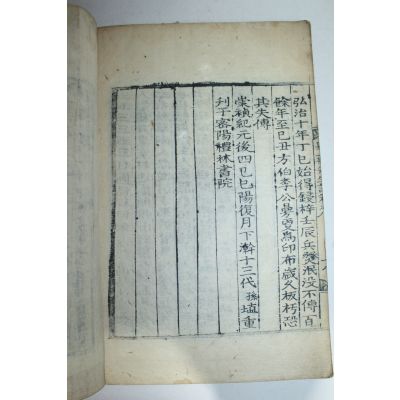 弘治十年丁巳始得鋟梓壬辰兵燹泯没不傳百
餘年至己丑方伯李公夢爲印布歲久板朽恐
其失傳
崇禎紀元後四己巳陽復月下澣十三代孫埴重
刊于密陽禮林書院